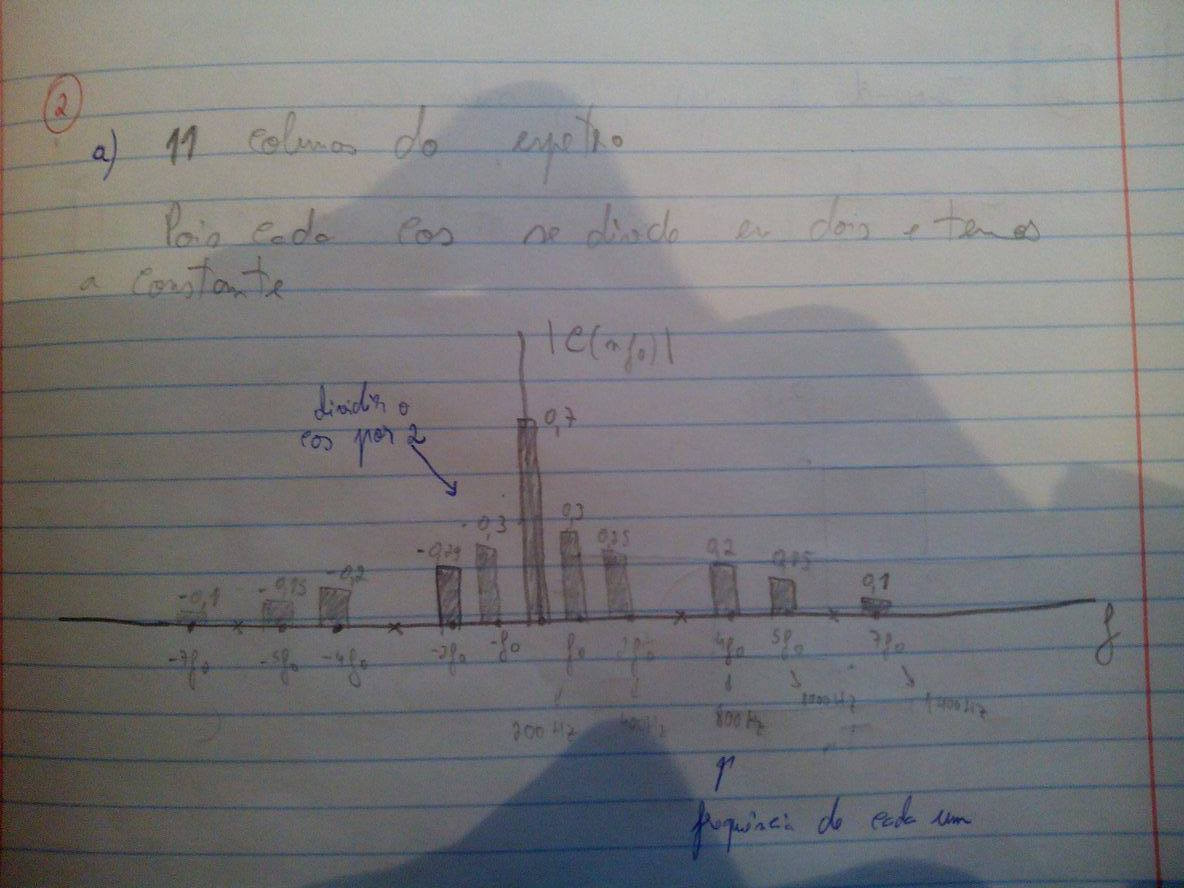 2
a) 11 colunas do espetro
Pois cada cos se divide em dois e temos
a constante
|C(nf₀)|
dividir o
cos por 2
0,7
-0,3 0,3
-0,25 0,25
-0,1 -0,15 -0,2 0,2 0,15 0,1
-7f₀ -5f₀ -4f₀ -2f₀ -f₀ f₀ 2f₀ 4f₀ 5f₀ 7f₀ f
200 Hz 400 Hz 800 Hz 1000 Hz 1400 Hz
frequência de cada um